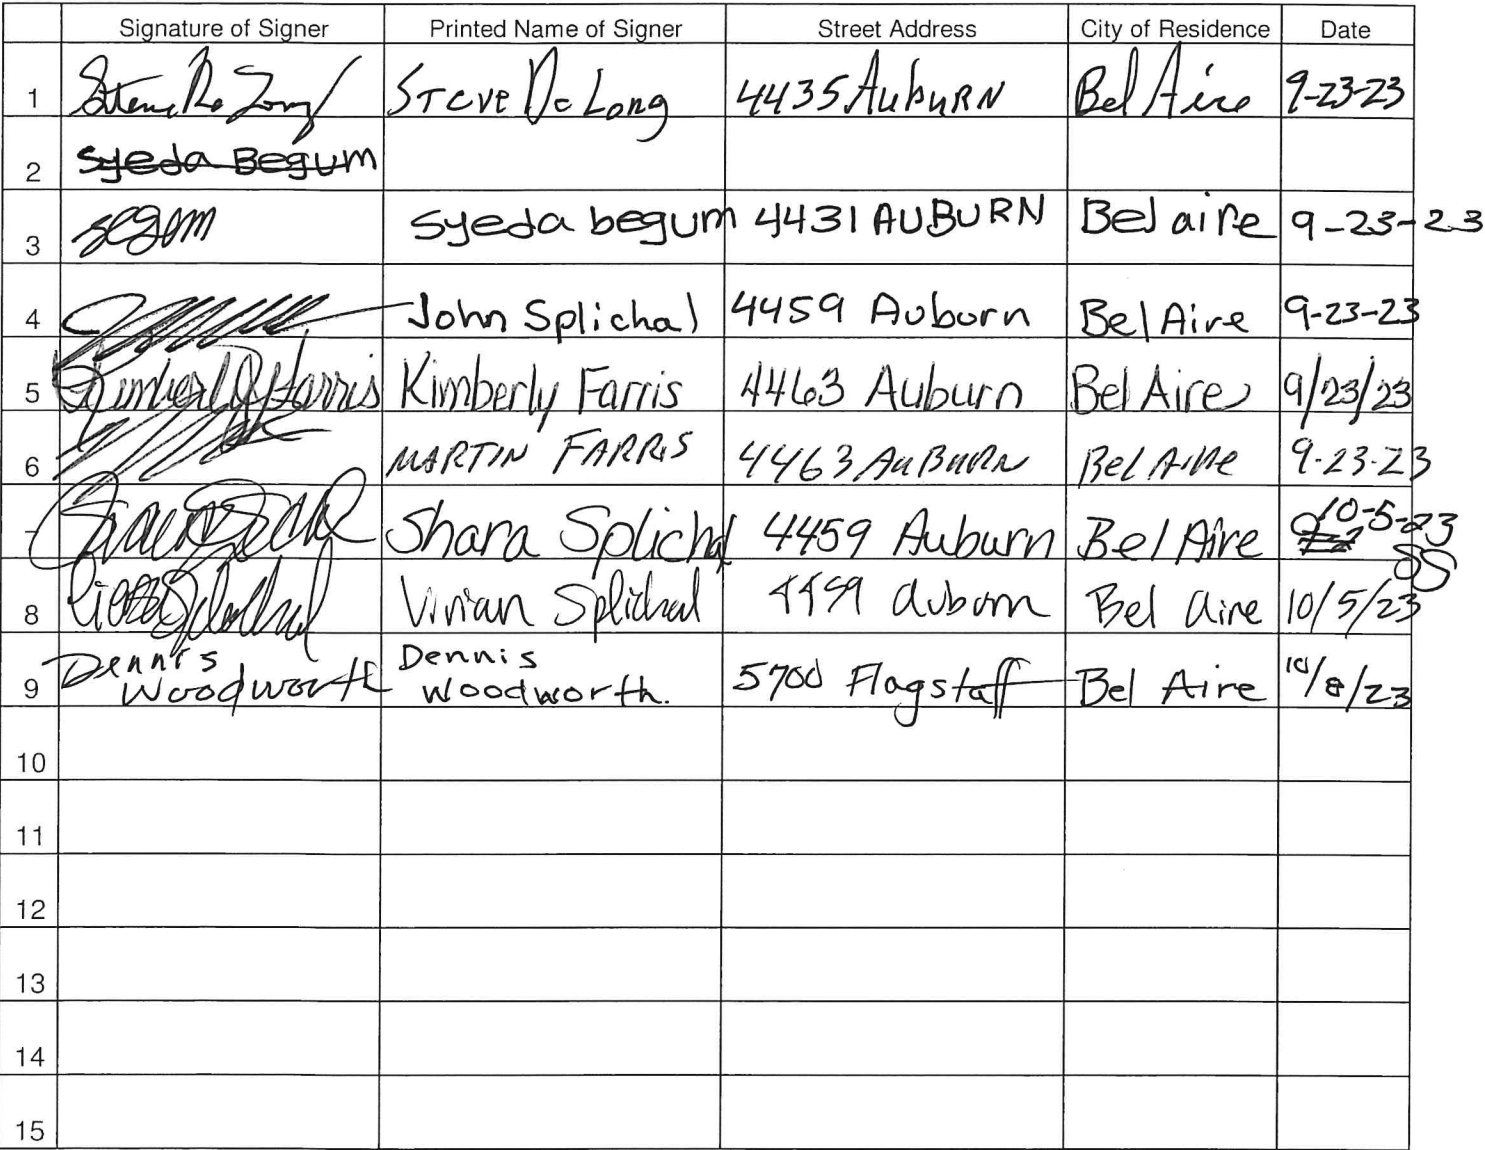 Signature of Signer Printed Name of Signer Street Address City of Residence Date
1 Steve De Long Steve De Long 4435 Auburn Bel Aire 9-23-23
2 Syeda Begum
3 syeda begum 4431 AUBURN Bel aire 9-23-23
4 John Splichal 4459 Auburn Bel Aire 9-23-23
5 Kimberly Farris Kimberly Farris 4463 Auburn Bel Aire 9/23/23
6 MARTIN FARRIS 4463 AuBURN Bel Aire 9-23-23
7 Shara Splichal 4459 Auburn Bel Aire 10-5-23
SS
8 Vivian Splichal 4459 Auburn Bel Aire 10/5/23
9 Dennis Woodworth Dennis Woodworth. 5700 Flagstaff Bel Aire 10/8/23
10
11
12
13
14
15